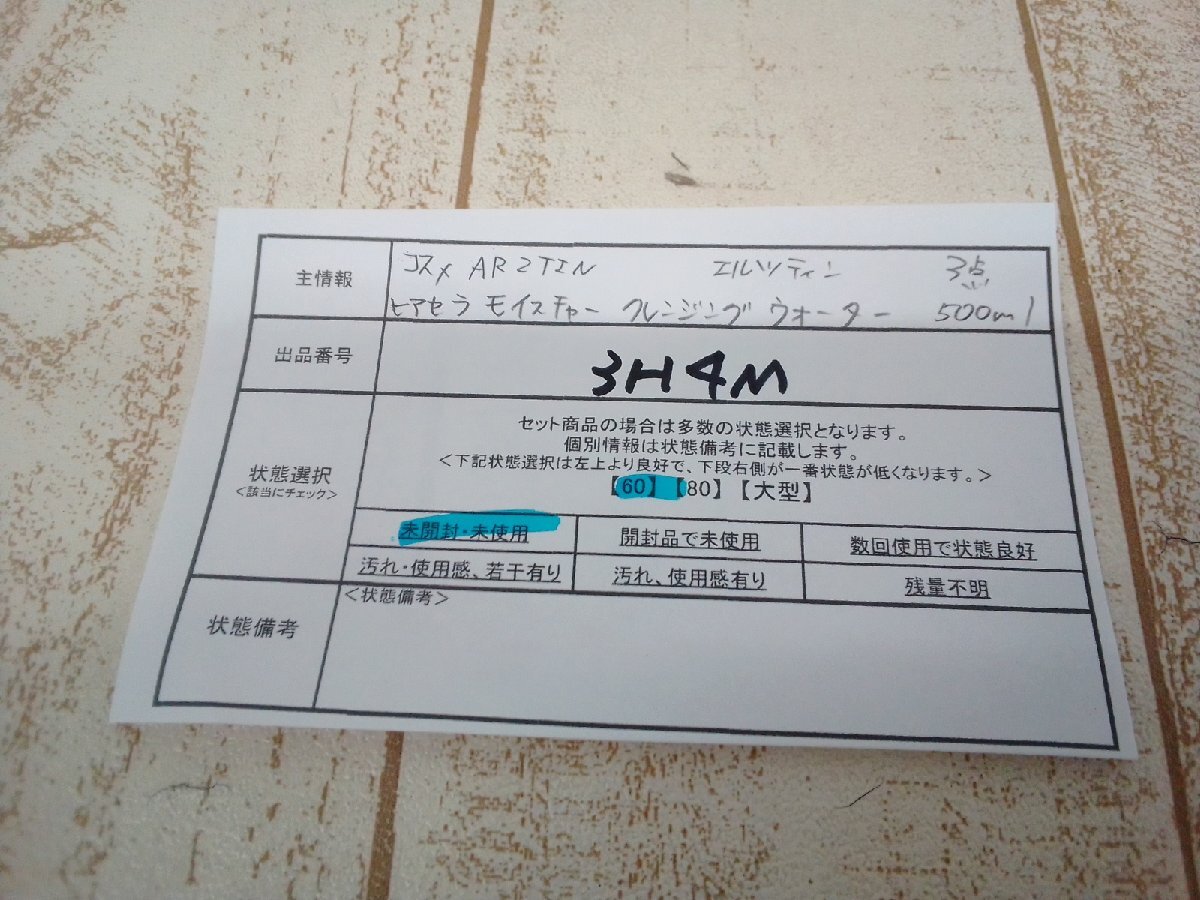 主情報
コスメ ARZTIN エルツティン 3点
ヒアセラ モイスチャー クレンジング ウォーター 500ml
出品番号
3H4M
状態選択
<該当にチェック>
セット商品の場合は多数の状態選択となります。
個別情報は状態備考に記載します。
<下記状態選択は左上より良好で、下段右側が一番状態が低くなります。>
【60】【80】【大型】
未開封・未使用 開封品で未使用 数回使用で状態良好
汚れ・使用感、若干有り 汚れ、使用感有り 残量不明
状態備考
<状態備考>